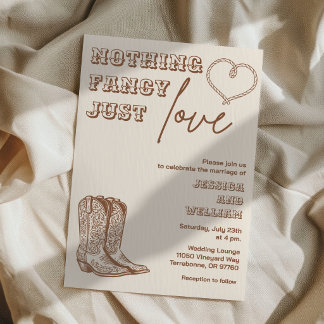 NOTHING
FANCY
JUST
love
Please join us
to celebrate the marriage of
JESSICA
AND
WELLIAM
Saturday, July 23th
at 4 pm.
Wedding Lounge
11060 Vineyard Way
Terrebonne, OR 97760
Reception to follow